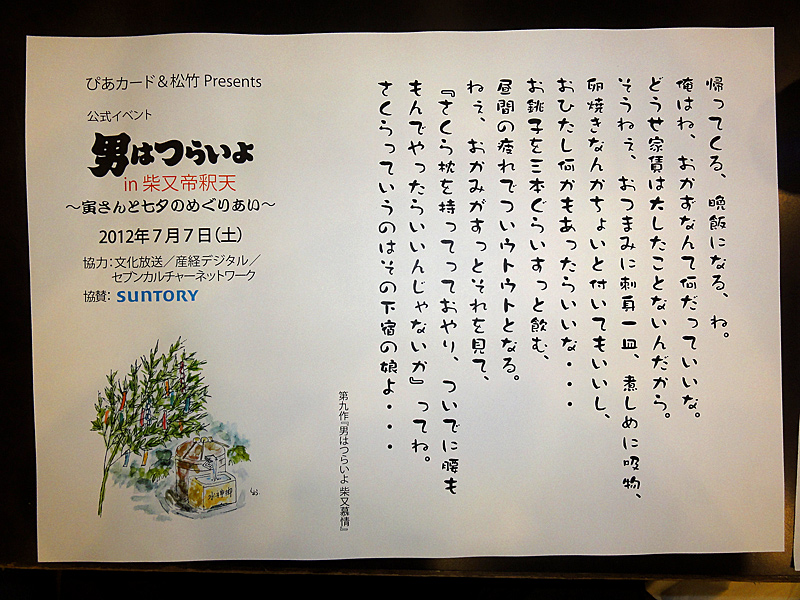 ぴあカード＆松竹 Presents
公式イベント
男はつらいよ
in 柴又帝釈天
〜寅さんと七夕のめぐりあい〜
2012年7月7日（土）
協力：文化放送／産経デジタル／
セブンカルチャーネットワーク
協賛：SUNTORY
帰ってくる、晩飯になる、ね。
俺はね、おかずなんて何だっていいな。
どうせ家賃は大したことないんだから。
そうねぇ、おつまみに刺身一皿、煮しめに吸物、
卵焼きなんかちょいと付いてもいいし、
おひたし何かもあったらいいな・・・
お銚子を三本ぐらいすっと飲む、
昼間の疲れでついウトウトとなる。
ねぇ、おかみがすっとそれを見て、
『さくら枕を持ってっておやり、ついでに腰も
もんでやったらいいんじゃないか』ってね。
さくらっていうのはその下宿の娘よ・・・
第九作『男はつらいよ 柴又慕情』